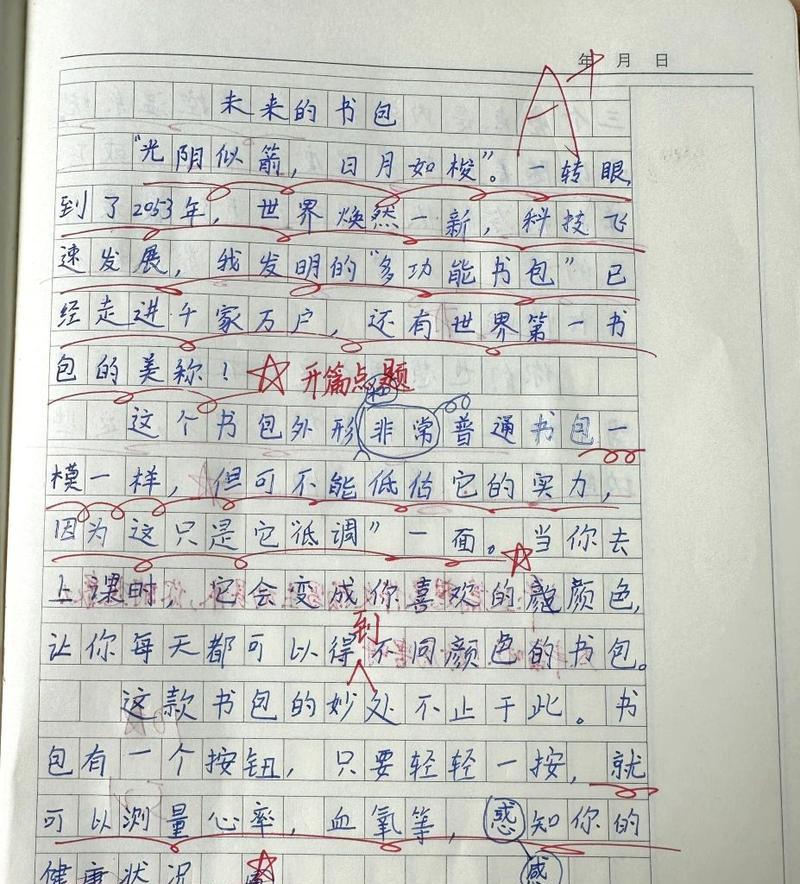 年 月 日
A+
未来的书包
“光阴似箭，日月如梭”。一转眼，
到了2053年，世界焕然一新，科技飞
速发展，我发明的“多功能书包”已
经走进千家万户，还有世界第一书
包的美称！ 开篇点题
这个书包外形非常普通书包一
模一样，但可不能低估它的实力，
因为这只是它“低调”一面。当你去
上课时，它会变成你喜欢的颜颜色，
到
让你每天都可以得不同颜色的书包。
这款书包的妙处不止于此。书
包有一个按钮，只要轻轻一按，就
可以测量心率，血氧等，惑知你的
感
健康状况